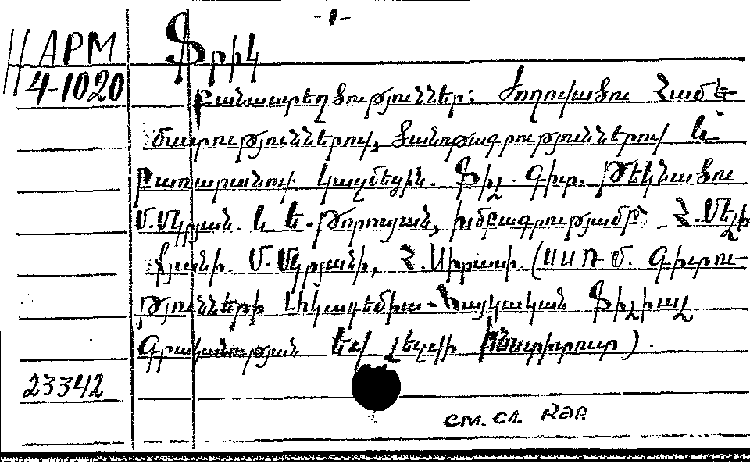 -1-
АРМ
4-1020
Ֆրիկ
Բանաստեղծություններ: Ժողովածու Համե-
մատություններով, ծանոթագրություններով և
Բառարանով կազմեցին. Ֆիլ. գիտ. Թեկնածու
Մ.Մկրյան. և Ե. Թորոսյան, խմբագրությամբ Հ.
Մ. Մկրյանի, Հ. (ՍՍՌՄ. Գիտու-
թյունների Ակադեմիա-Հայկական Ֆիլիալ
Գրականության և Լեզվի Ինստիտուտ).
23342
см. сл. кар